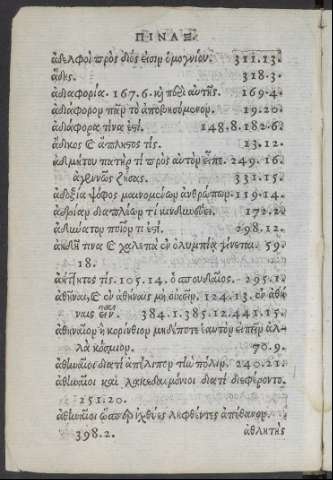 ΠΙΝΑΞ
ἀδελφοὶ πρὸς διός εἰσιν ὁμογνίου. 311.13.
ἅδης. 318.3.
ἀδιαφορία. 167.6. ἢ περὶ αὐτῆς. 169.4.
ἀδιάφορον παρὰ τὸ ἀποβησόμενον. 19.20.
ἀδιάφορα τίνα ἐστί. 148.8.182.6.
ἄδικος ἢ ἄπληστος τίς. 13.12.
ἀδμήτου πατὴρ τί πρὸς αὐτὸν εἶπε. 249.16.
ἀχεννῶς ζήσας. 331.15.
ἀδοξία ψόφος μαινομένων ἀνθρώπων. 119.14.
ἀδρίαν διαπλέων τί κινδυνεύει. 172.2.
ἀδύνατον ποῖον τί ἐστί. 298.12.
ἀηδῆ τινα ἢ χαλεπὰ ἐν ὀλυμπίᾳ γίνεται. 59.
18.
ἀήττητος τίς. 105.14. ὁ σπουδαῖος. 295.1.
ἀθῆναι, ἢ ἐν ἀθήναις μὴ οἰκεῖν. 124.13. ἐν ἀθή
ναις εἶναι. 384.1.385.12.443.15.
ἀθηναῖον ἢ κορίνθιον μηδέποτε ἑαυτὸν εἰπεῖν ἀλ-
λὰ κόσμιον. 70.9.
ἀθηναῖοι διατί ἀπέλιπον τὴν πόλιν. 240.21.
ἀθηναῖοι καὶ λακεδαιμόνιοι διατί διεφέροντο.
251.20.
ἀθηναῖοι ὥσπερ ἰχθύες ληφθέντες ἀπέθανον.
398.2. ἀθλητὴς